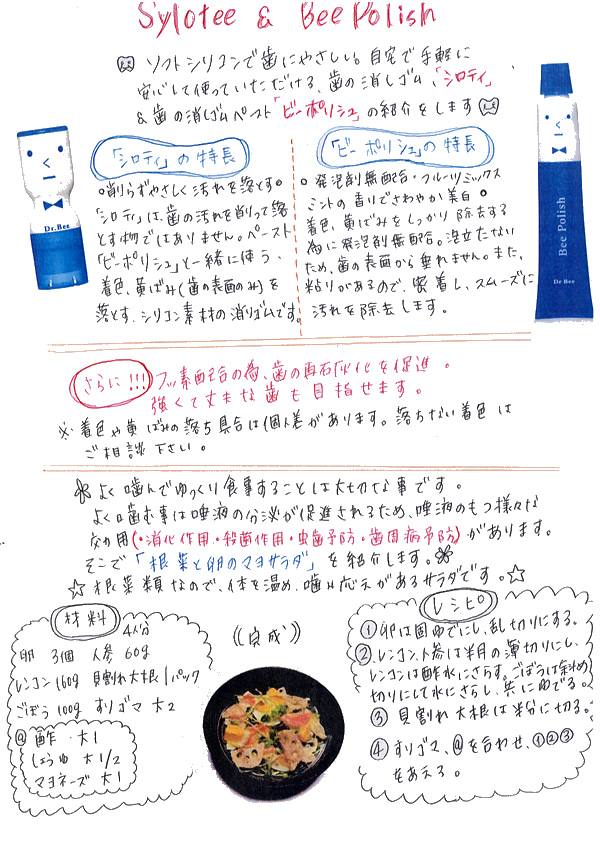 Sylotee & Bee Polish
ソフトシリコンで歯にやさしい。自宅で手軽に
安心して使っていただける、歯の消しゴム、「シロティ」
& 歯の消しゴムペースト「ビーポリシュ」の紹介をします
「シロティ」の特長
○削らずやさしく汚れを落とす○
「シロティ」は、歯の汚れを削って落
とす物ではありません。ペースト
「ビーポリシュ」と一緒に使う、
着色、黄ばみ(歯の表面のみ)を
落とす、シリコン素材の消しゴムです。
Dr.Bee
「ビーポリシュ」の特長
○発泡剤無配合・フルーツミックス
ミントの香りでさわやか美白○
着色、黄ばみをしっかり除去する
為に発泡剤無配合。泡立たない
ため、歯の表面から垂れません。また、
粘りがあるので、密着し、スムーズに
汚れを除去します。
Bee Polish
Dr Bee
さらに!!! フッ素配合の為、歯の再石灰化を促進。
強くて丈夫な歯も目指せます。
※着色や黄ばみの落ち具合は個人差があります。落ちない着色は
ご相談下さい。
よく噛んでゆっくり食事することは大切な事です。
よく噛む事は唾液の分泌が促進されるため、唾液のもつ様々な
効用(・消化作用・殺菌作用・虫歯予防・歯周病予防)があります。
そこで「根菜と卵のマヨサラダ」を紹介します。
☆根菜類なので、体を温め、噛み応えがあるサラダです。☆
材料
4人分
卵 3個 人参 60g
レンコン 160g 貝割れ大根 1パック
ごぼう 100g すりゴマ 大2
@ 酢 大1
しょうゆ 大1/2
マヨネーズ 大1
((完成))
レシピ
①卵は固ゆでにし、乱切りにする。
②レンコン、人参は半月の薄切りにし、
レンコンは酢水にさらす。ごぼうは斜め
切りにして水にさらし、共にゆでる。
③貝割れ大根は半分に切る。
④すりゴマ、@を合わせ、①②③
をあえる。